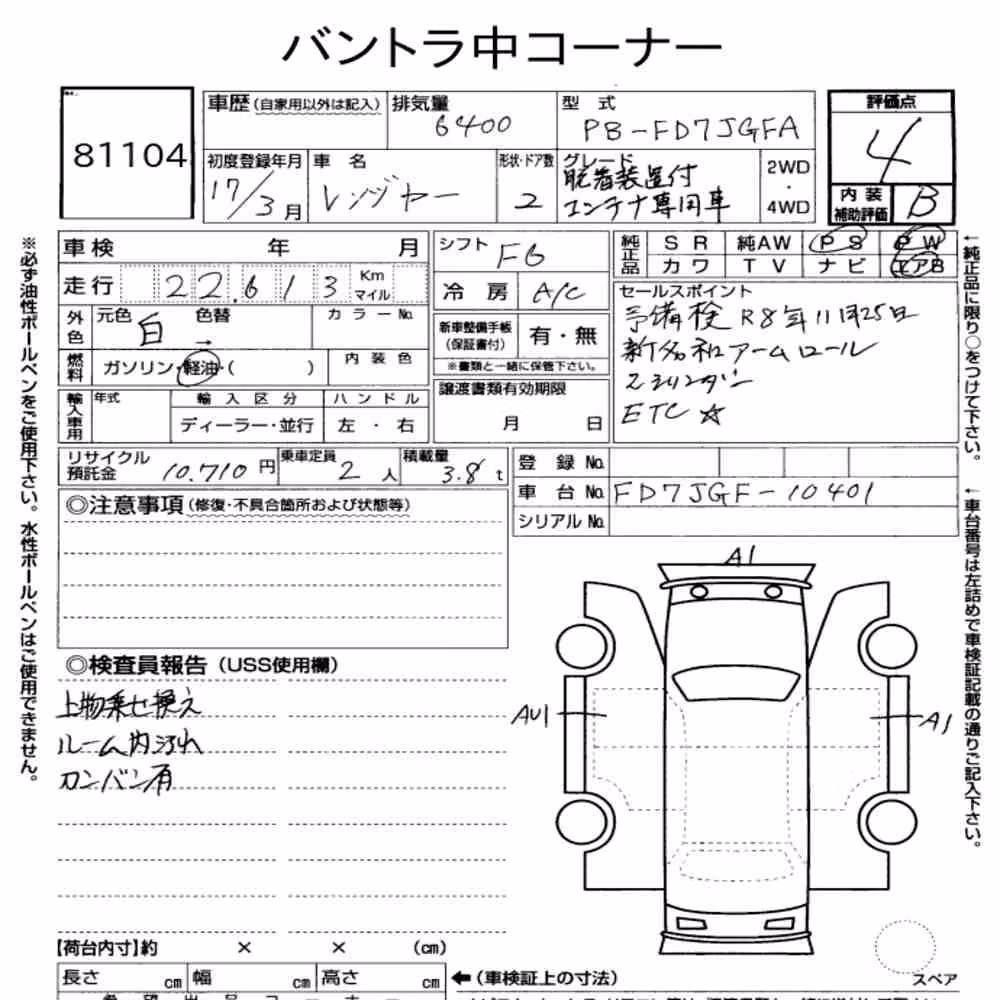 バントラ中コーナー
81104
車歴(自家用以外は記入)
排気量
6400
型式
PB-FD7JGFA
評価点
4
初度登録年月
17/3月
車名
レンジャー
形状・ドア数
2
グレード
脱着装置付
コンテナ専用車
2WD
・
4WD
内装
補助評価
B
車検 年 月
シフト
F6
純正品
SR 純AW PS PW
カワ TV ナビ エアB
走行 22.613 Km
マイル
冷房 A/C
セールスポイント
予備検 R8年11月25日
新明和アームロール
2シリンダー
ETC ☆
外色
元色 白 → 色替
カラーNo.
新車整備手帳
(保証書付)
有・無
※書類と一緒に保管下さい。
燃料
ガソリン・軽油・( )
内装色
譲渡書類有効期限
月 日
輸入車用
年式
輸入区分
ハンドル
ディーラー・並行
左・右
リサイクル
預託金
10.710円
乗車定員
2人
積載量
3.8t
登録No.
車台No. FD7JGF-10401
シリアルNo.
◎注意事項(修復・不具合箇所および状態等)
◎検査員報告(USS使用欄)
上物乗せ換え
ルーム内汚れ
カンバン有
A1
AU1
A1
【荷台内寸】約 × × (cm)
長さ cm 幅 cm 高さ cm
←(車検証上の寸法)
スペア
※必ず油性ボールペンをご使用下さい。水性ボールペンはご使用できません。
←純正品に限り○をつけて下さい。
←車台番号は左詰めで車検証記載の通りご記入下さい。